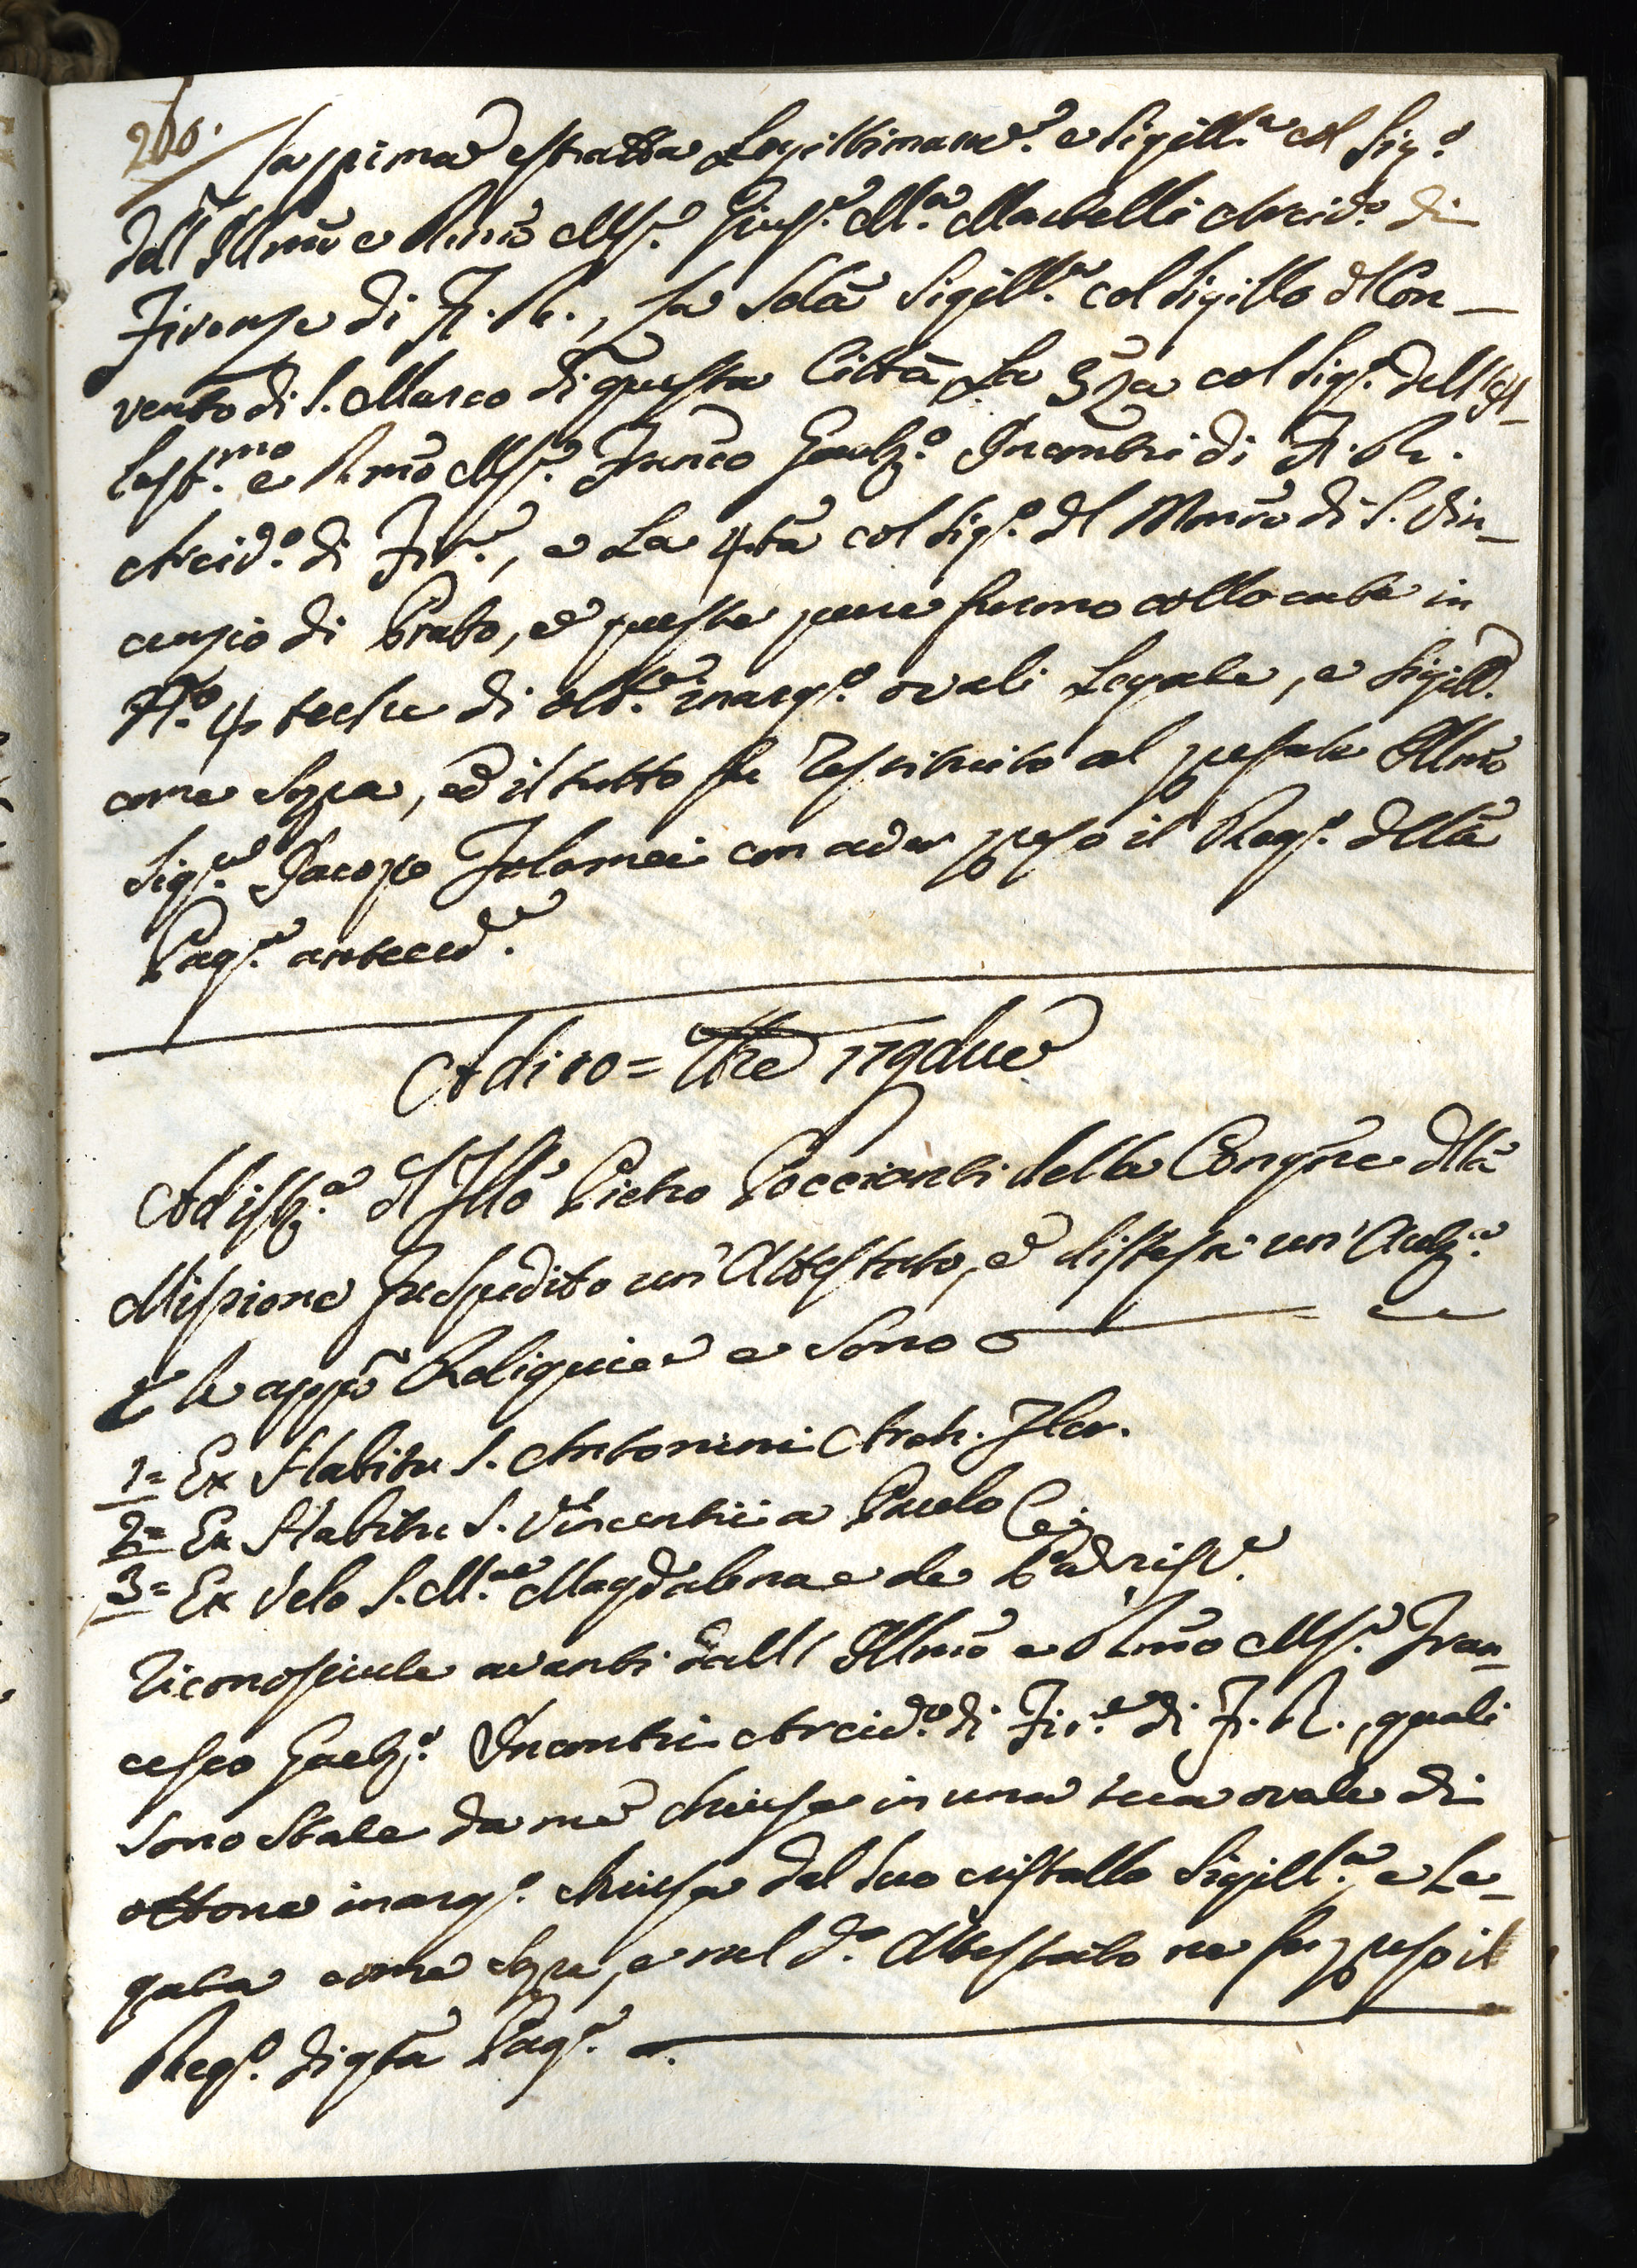 260.
La prima estratta Legittimam.e e sigill.a col sig.o
dall Illmo e Rmo Ms.r Gius.e M.a Martelli Arciv.o di
Firenze di F. R., la 2da sigill.a col sigillo dl Con-
vento di S. Marco di questa Città, La 3za col sig.o dell
e Rmo Ms.r Franco Gaet.o Incontri di F. R.
Arciv.o di Fir.e, e La 4ta col sig.o dl Monro di S. Vin-
cenzio di Prato, e queste pure furono collocate in
N.o 4 teche di ott.e inarg.o ovali Legate, e sigill.
come sopra, ed il tutto fu restituito al prefato Illmo
Sig.re Jacopo Tolomei con aver preso il Reg.o dlla
Pag.a anteced.e
Adi 10 = 1792
Ad ist.a dl Illo Pietro Poccianti della Congne dlla
Missione fu spedito un' Attestato, e distesa un' Aut.a
p le appo Reliquie e sono
1= Ex Habitu S. Antonini Arch. Flor.
2= Ex Habitu S. Vincentii a Paulo Co:
3= Ex Velo S. M.ae Magdalenae de Padris V.
riconosciute avanti dall' Illmo e Rmo Ms.r Fran-
cesco Gaet.o Incontri Arciv.o di Fir.e di F. R., quali
sono state da me chiuse in una teca ovale di
ottone inarg.o chiusa dal suo cristallo sigill.a, e Le-
gata come sopra, e nel d.o Attestato ne fu preso il
Reg.o di qta Pag.a